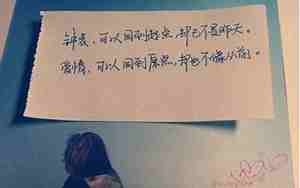 钟表，可以回到起点，却已不是昨天。
爱情，可以回到原点，却已不像从前。